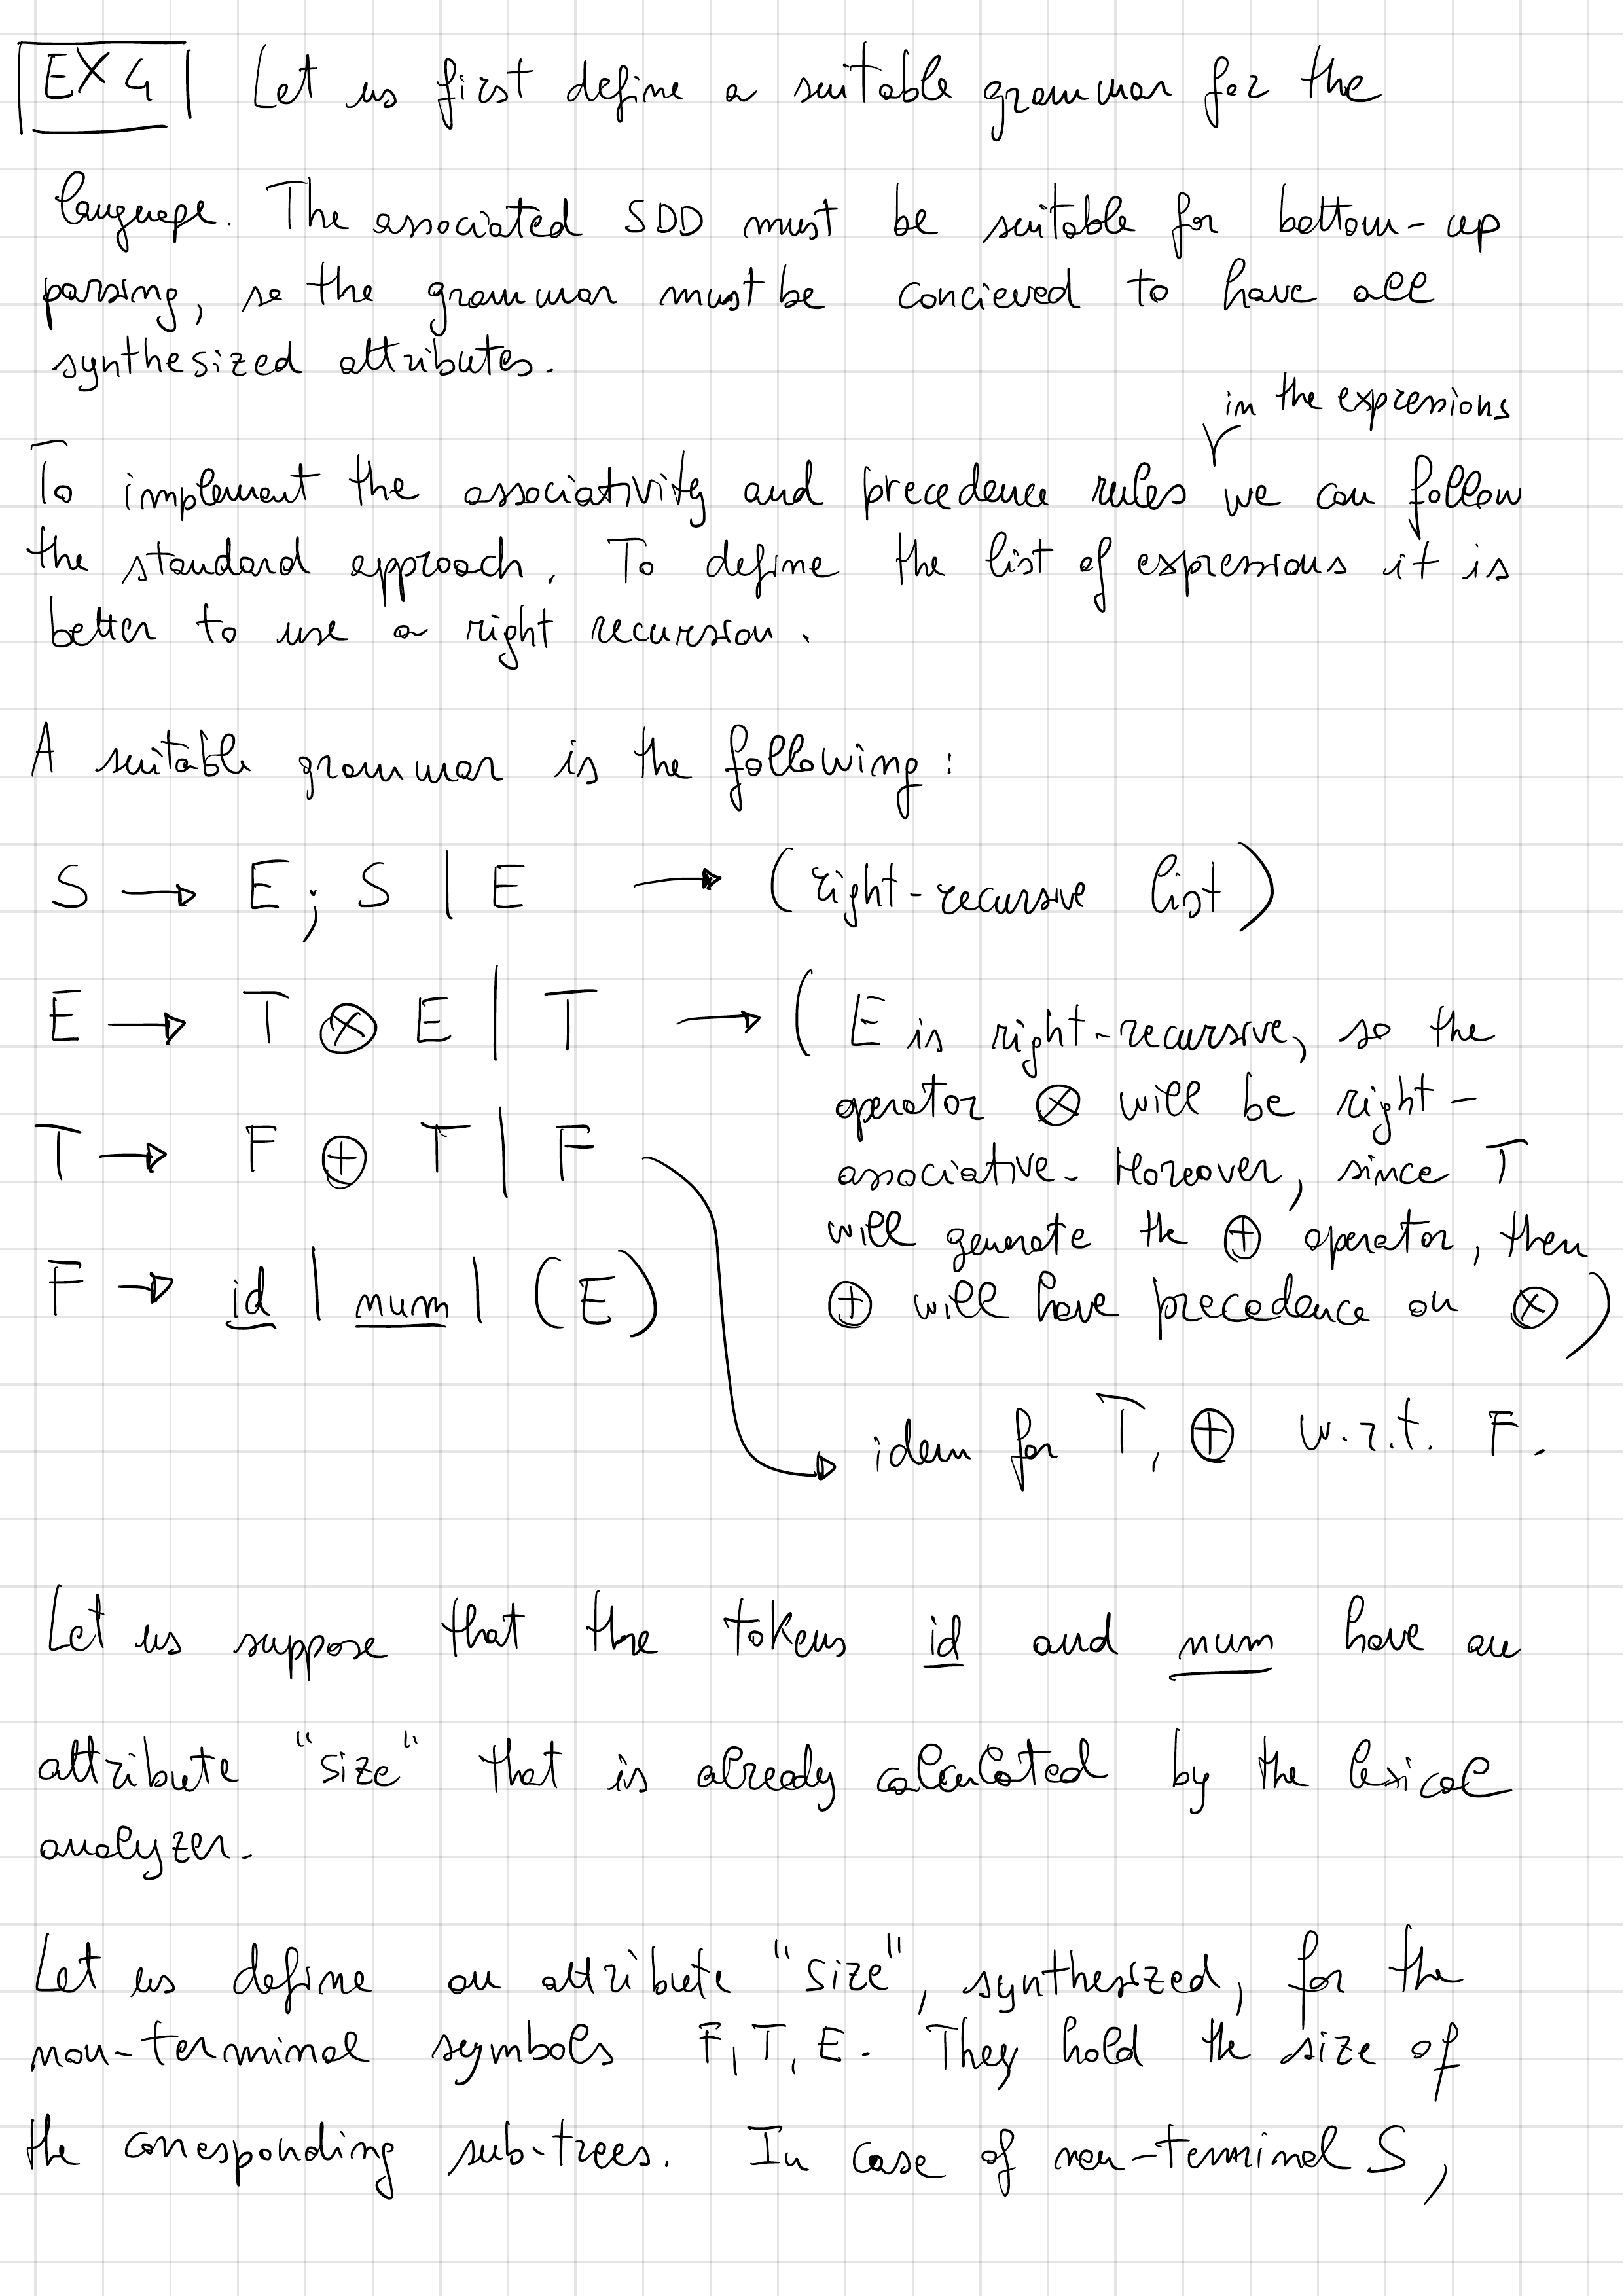 EX 4 Let us first define a suitable grammar for the
language. The associated SDD must be suitable for bottom-up
parsing, so the grammar must be concieved to have all
synthesized attributes.
in the expressions
To implement the associativity and precedence rules we can follow
the standard approach. To define the list of expressions it is
better to use a right recursion.
A suitable grammar is the following:
S → E; S | E → (right-recursive list)
E → T ⊗ E | T → (E is right-recursive, so the
operator ⊗ will be right-
T → F ⊕ T | F
associative. Moreover, since T
will generate the ⊕ operator, then
F → id | num | (E)
⊕ will have precedence on ⊗)
idem for T, ⊕ w.r.t. F.
Let us suppose that the tokens id and num have an
attribute "size" that is already calculated by the lexical
analyzer.
Let us define an attribute "size", synthesized, for the
non-terminal symbols F, T, E. They hold the size of
the corresponding sub-trees. In case of non-terminal S,